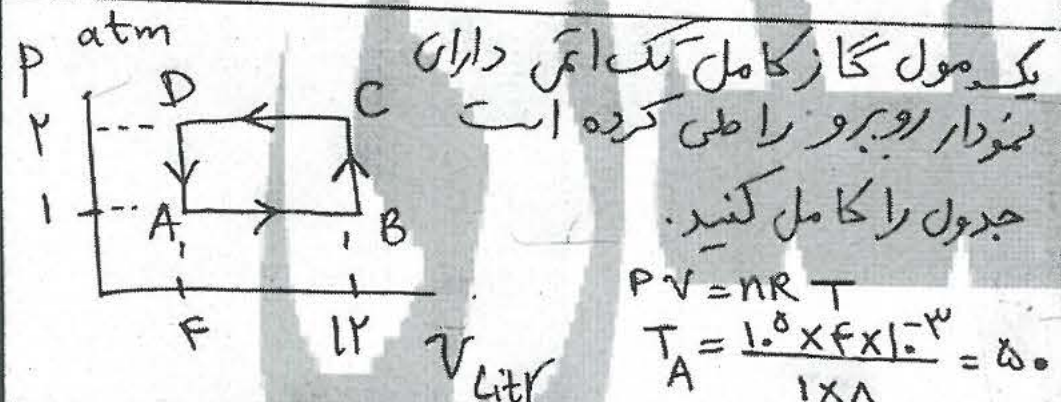 یک مول گاز کامل تک اتمی دارای
نمودار روبرو را طی کرده است
جدول را کامل کنید.
P atm
D C
۲
۱
A B
۴ ۱۲
V Litr
PV = nR T
T_A = ۱۰^۵ × ۴ × ۱۰^-۳ / ۱×۸ = ۵۰